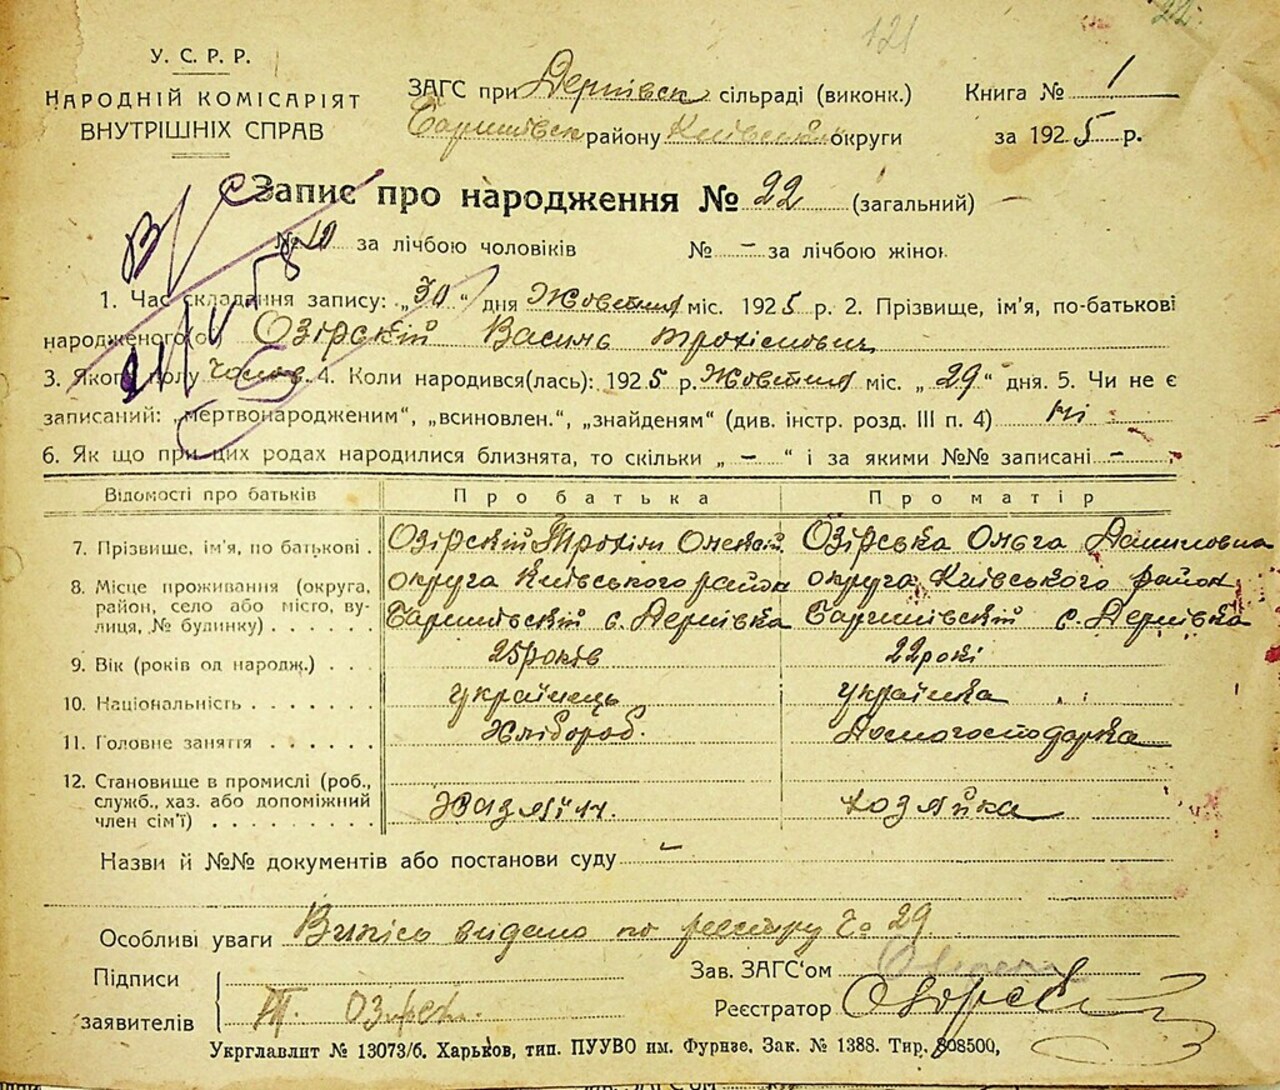 121
У. С. Р. Р.
НАРОДНІЙ КОМІСАРІЯТ
ВНУТРІШНІХ СПРАВ
ЗАГС при Дернівск сільраді (виконк.)
Баришівск району Київської округи
Книга № 1
за 1925 р.
Запис про народження № 22 (загальний)
№ 10 за лічбою чоловіків № – за лічбою жінок
1. Час складання запису: „30“ дня Жовтня міс. 1925 р. 2. Прізвище, ім'я, по-батькові
народженого(ої) Озірскій Василь Трохімович
3. Якого полу Чолов. 4. Коли народився(лась): 1925 р. Жовтня міс. „29“ дня. 5. Чи не є
записаний: „мертвонародженим“, „всиновлен.“, „знайденям“ (див. інстр. розд. III п. 4) ні
6. Як що при цих родах народилися близнята, то скільки „–“ і за якими №№ записані –
Відомості про батьків Про батька Про матір
7. Прізвище, ім'я, по батькові . Озірскій Трохім Олексій. Озірська Ольга Даниловна
8. Місце проживання (округа, округа Київського район округа Київського район
район, село або місто, ву-
лиця, № будинку) . . . . . . Баришівскій с. Дернівка Баришівскій с. Дернівка
9. Вік (років од народж.) . . . 25 років 22 рокі
10. Національність . . . . . . . українець українка
11. Головне заняття . . . . . . Хлібороб. Домогосподарка
12. Становище в промислі (роб.,
служб., хаз. або допоміжний
член сім'ї) . . . . . . . . Хазяїн. Хозяйка
Назви й №№ документів або постанови суду –
Особливі уваги Випісь видано по реєстру № 29
Підписи
заявителів Т. Озірск.
Зав. ЗАГС'ом
Реєстратор
Укрглавліт № 13073/б. Харьков, тип. ПУУВО им. Фурнзе. Зак. № 1388. Тир. 808500,